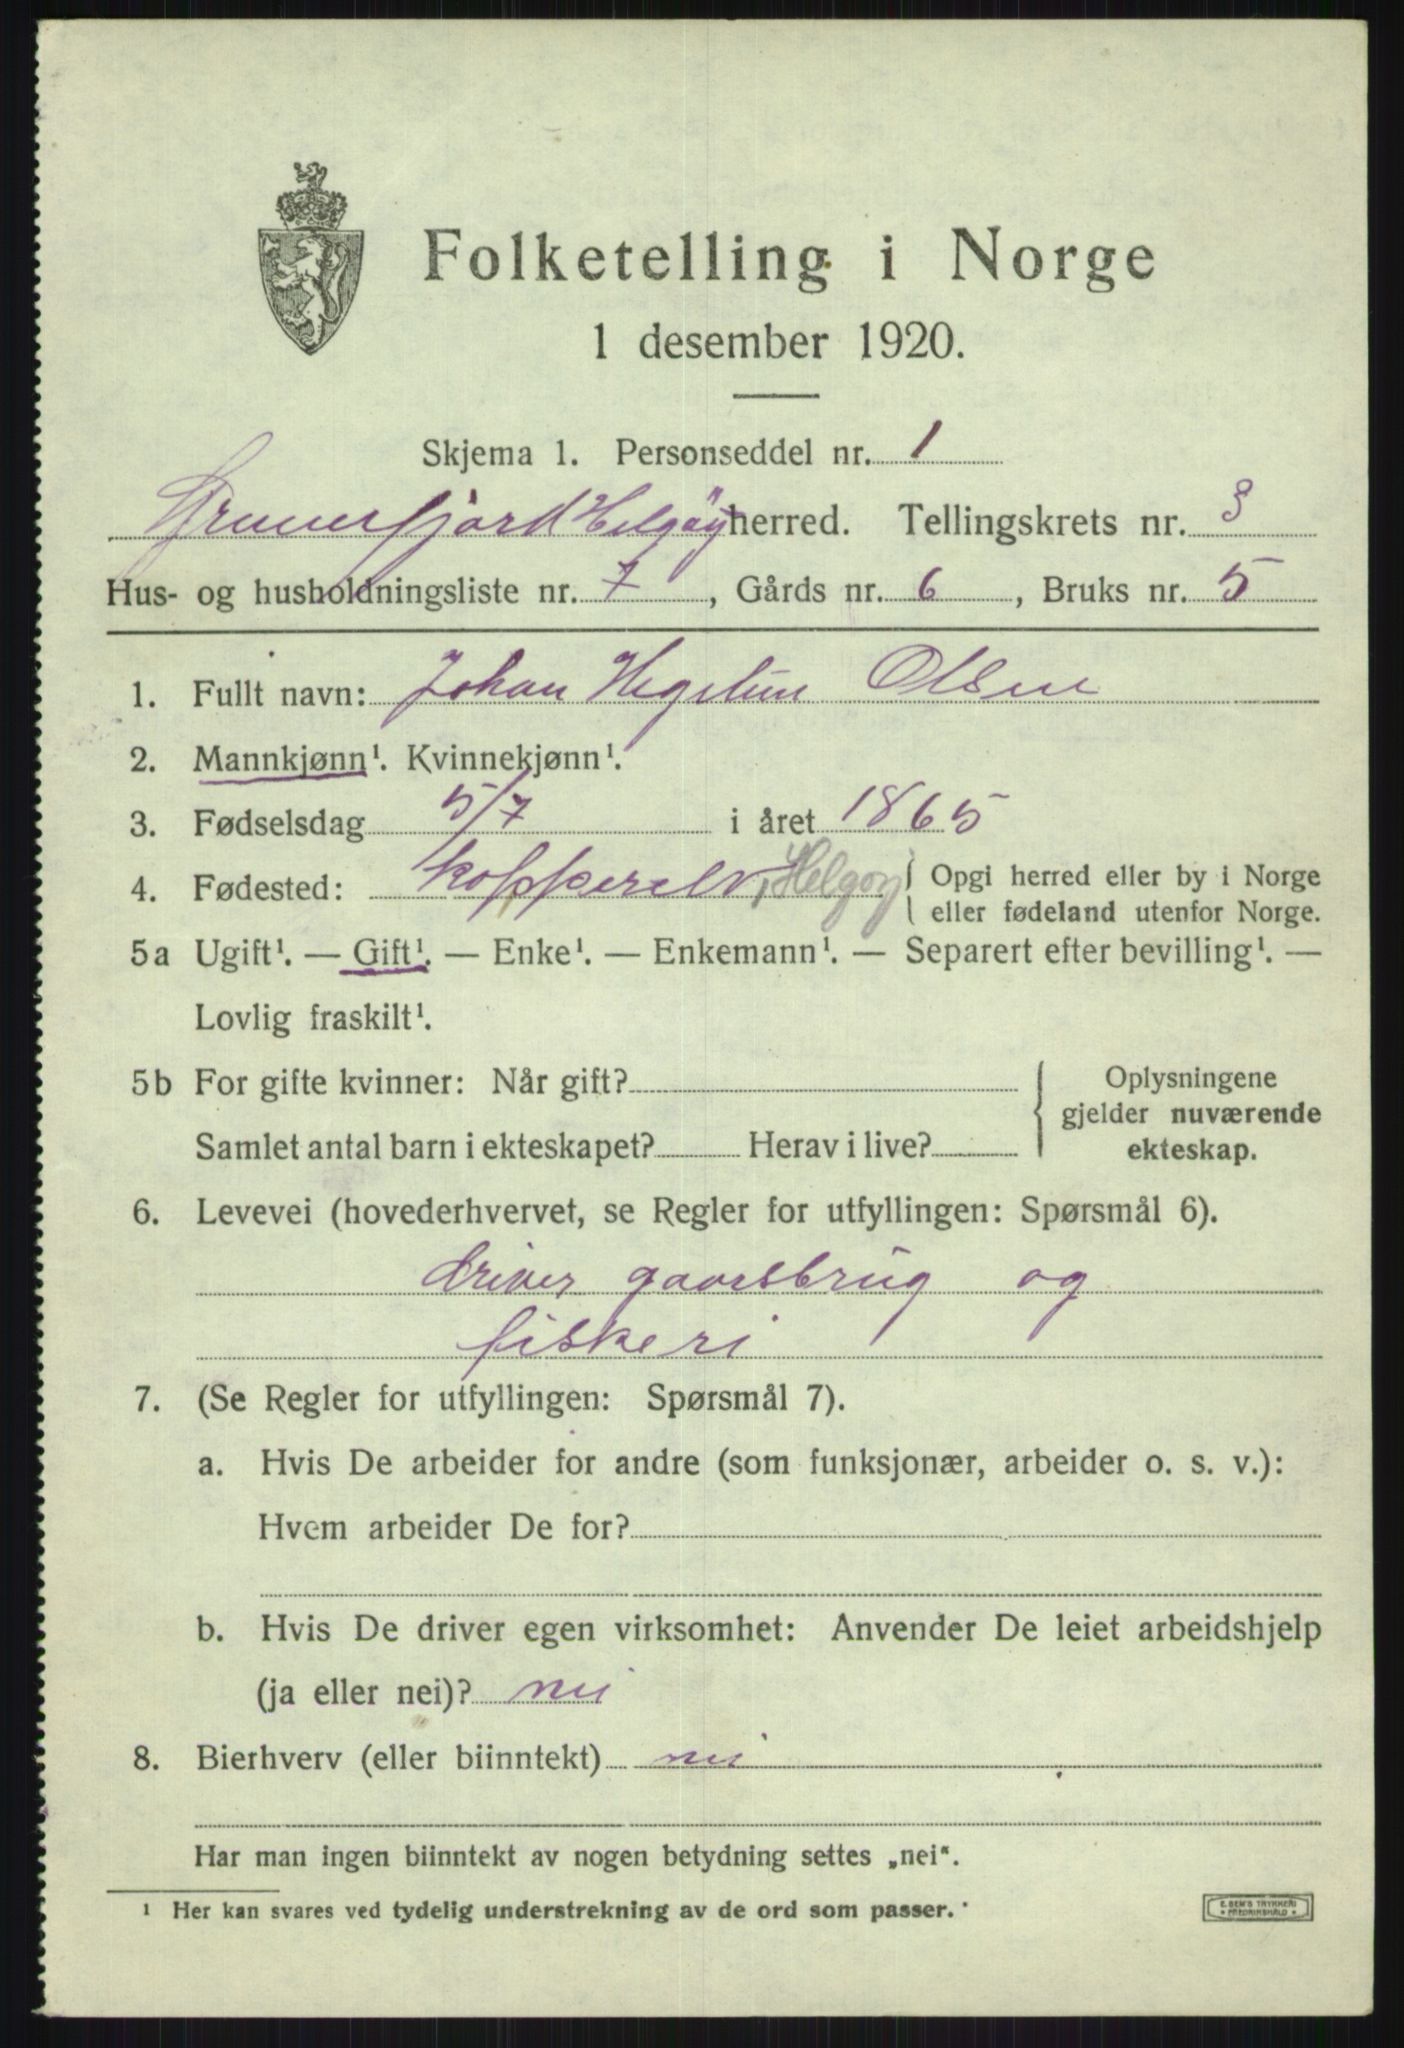 Folketelling i Norge
1 desember 1920.
Skjema 1. Personseddel nr. 1
Helgøy herred. Tellingskrets nr. 3
Hus- og husholdningsliste nr. 7, Gårds nr. 6, Bruks nr. 5
1. Fullt navn: Johan Hegelun Olsen
2. Mannkjønn¹. Kvinnekjønn¹.
3. Fødselsdag 5/7 i året 1865
4. Fødested: Kopperelv, Helgøy { Opgi herred eller by i Norge
eller fødeland utenfor Norge.
5a Ugift¹. — Gift¹. — Enke¹. — Enkemann¹. — Separert efter bevilling¹. —
Lovlig fraskilt¹.
5b For gifte kvinner: Når gift? { Oplysningene
gjelder nuværende
Samlet antal barn i ekteskapet? Herav i live? ekteskap.
6. Levevei (hovederhvervet, se Regler for utfyllingen: Spørsmål 6).
driver gaardsbrug og
fiskeri
7. (Se Regler for utfyllingen: Spørsmål 7).
a. Hvis De arbeider for andre (som funksjonær, arbeider o. s. v.):
Hvem arbeider De for?
b. Hvis De driver egen virksomhet: Anvender De leiet arbeidshjelp
(ja eller nei)? nei
8. Bierhverv (eller biinntekt) nei
Har man ingen biinntekt av nogen betydning settes „nei“.
¹ Her kan svares ved tydelig understrekning av de ord som passer.
E. SEM'S TRYKKERI
FREDRIKSHALD